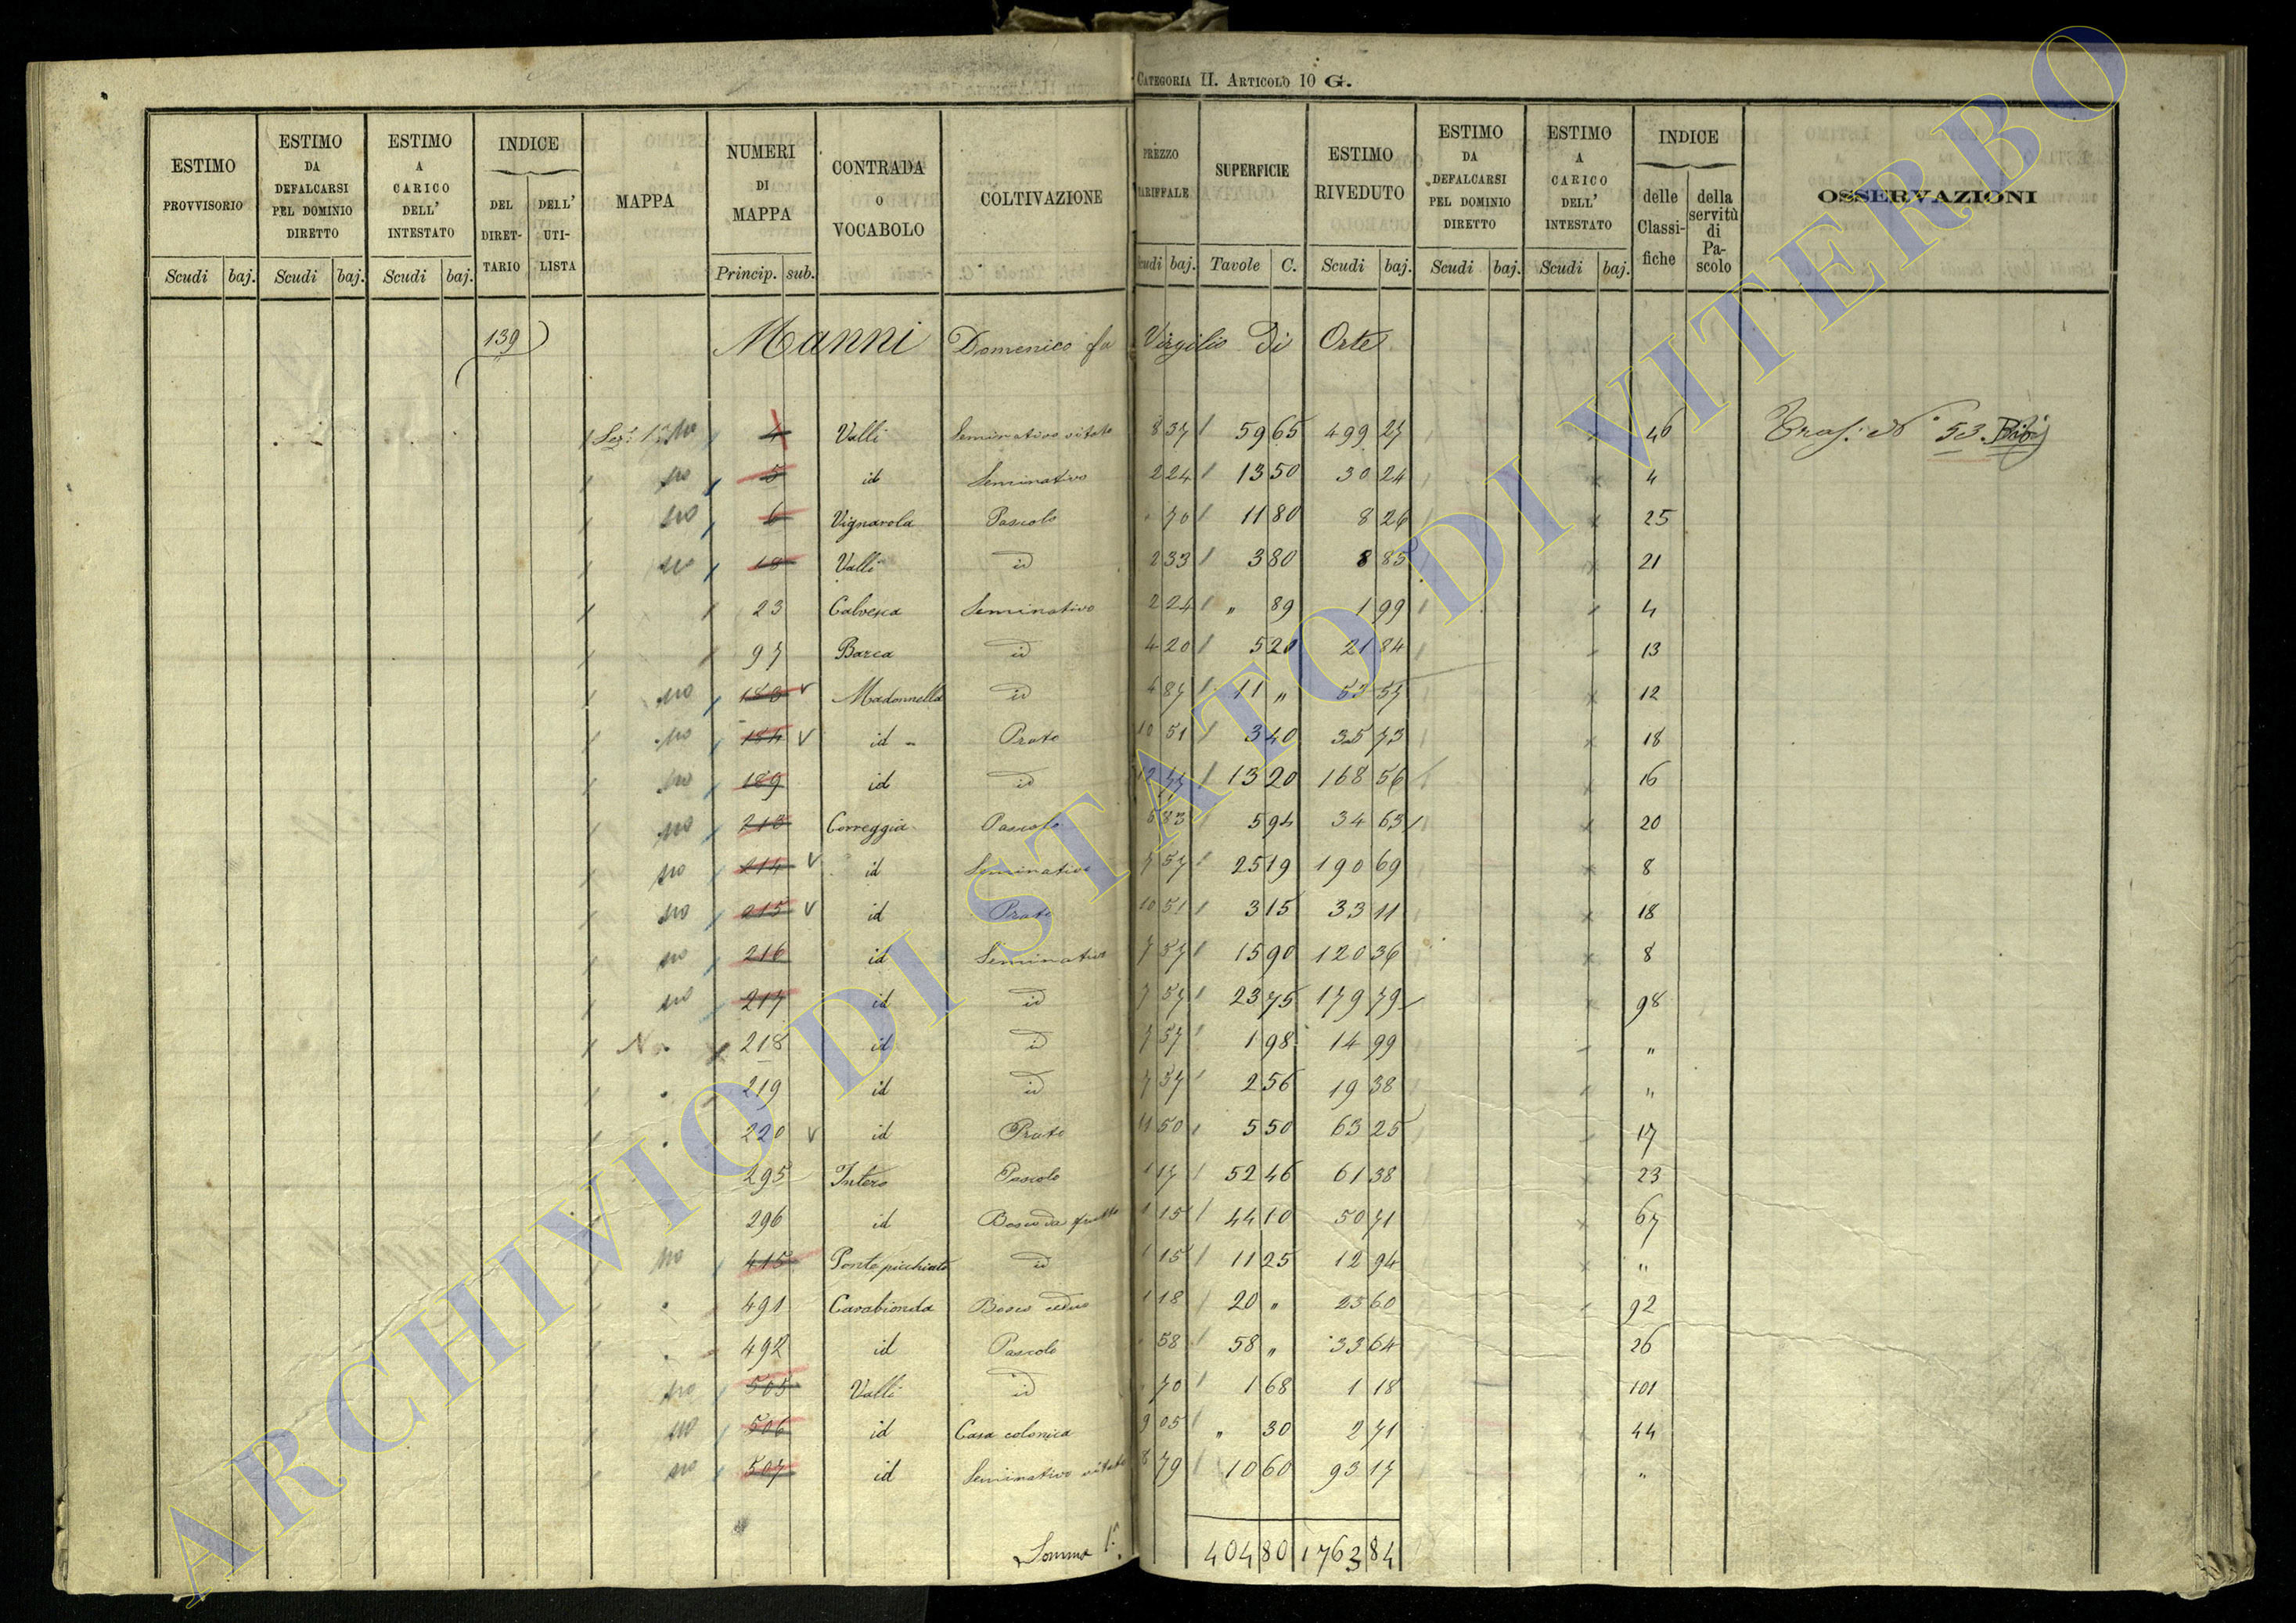 CATEGORIA II. ARTICOLO 10 G.
ESTIMO PROVVISORIO
ESTIMO DA DEFALCARSI PEL DOMINIO DIRETTO
ESTIMO A CARICO DELL' INTESTATO
INDICE
DEL DIRET-TARIO
DELL' UTI-LISTA
MAPPA
NUMERI DI MAPPA
CONTRADA O VOCABOLO
COLTIVAZIONE
PREZZO TARIFFALE
SUPERFICIE
ESTIMO RIVEDUTO
ESTIMO DA DEFALCARSI PEL DOMINIO DIRETTO
ESTIMO A CARICO DELL' INTESTATO
INDICE
delle Classi-fiche
della servitù di Pa-scolo
OSSERVAZIONI
Scudi baj. Scudi baj. Scudi baj. Princip. sub. Scudi baj. Tavole C. Scudi baj. Scudi baj. Scudi baj.
139 Manni Domenico fu Virgilio di Orte
Sez. 1a no 4 Valli Seminativo vitato 8 37 59 65 499 27 46 53
no 5 id Seminativo 2 24 13 50 30 24 4
no 6 Vignarola Pascolo 70 11 80 8 26 25
no 18 Valli id 2 33 3 80 8 85 21
23 Calvesca Seminativo 2 24 " 89 1 99 4
97 Barca id 4 20 5 20 21 84 13
no Madonnella id 4 87 11 " 53 57 12
no 184 v id Prato 10 51 3 40 35 73 18
no 189 id id 12 77 13 20 168 56 16
no 213 Correggia Pascolo 5 83 5 94 34 63 20
no 214 v id Seminativo 7 57 25 19 190 69 8
no 215 v id Prato 10 51 3 15 33 11 18
no 216 id Seminativo 7 57 15 90 120 36 8
no 217 id id 7 57 23 75 179 79 98
N. 218 id id 7 57 1 98 14 99 "
219 id id 7 57 2 56 19 38 "
220 v id Prato 11 50 5 50 63 25 17
295 Intero Pascolo 1 17 52 46 61 38 23
296 id Bosco da frutto 1 15 44 10 50 71 67
no 415 Ponte picchiato id 1 15 11 25 12 94 "
491 Carabionda Bosco ceduo 1 18 20 " 23 60 92
492 id Pascolo 58 58 " 33 64 26
no 505 Valli id 70 1 68 1 18 101
no 506 id Casa colonica 9 05 " 30 2 71 44
no 507 id Seminativo vitato 8 79 10 60 93 17 "
Somma 1a 404 80 1763 84
ARCHIVIO DI STATO DI VITERBO